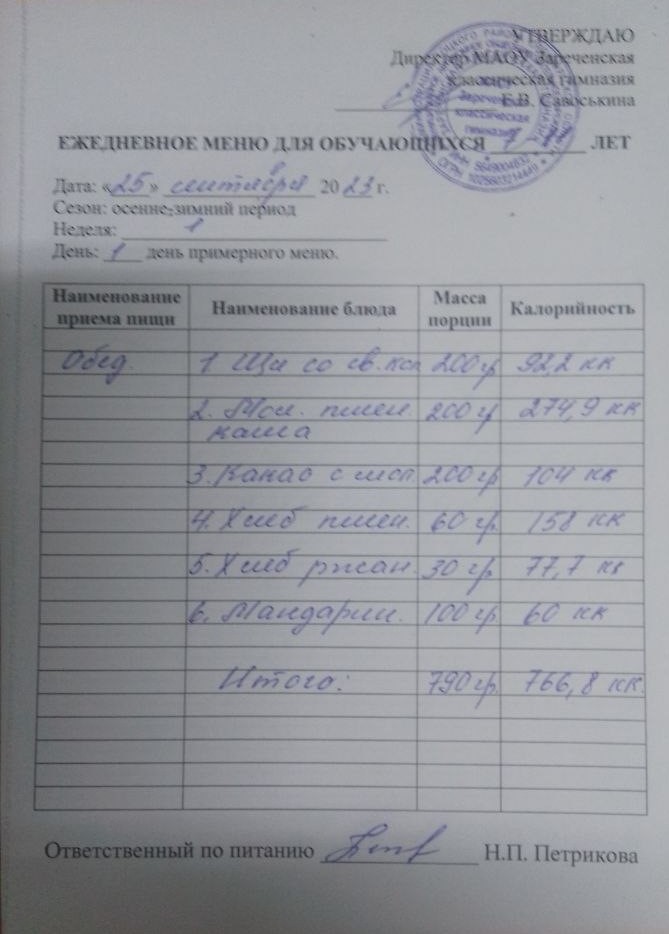 УТВЕРЖДАЮ
Директор МАОУ Зареченская
классическая гимназия
Е.В. Савоськина
Зареченская
классическая
гимназия
ИНН 5649004632
ОГРН 1025603214449
ЕЖЕДНЕВНОЕ МЕНЮ ДЛЯ ОБУЧАЮЩИХСЯ 7- ЛЕТ
Дата: «25» сентября 2023 г.
Сезон: осенне-зимний период
Неделя: 1
День: 1 день примерного меню.
Наименование приема пищи Наименование блюда Масса порции Калорийность
Обед. 1 Щи со св. кап 200 гр 92,2 кк
2. Мол. пшен. 200 гр 274,9 кк
каша
3. Какао с мол. 200 гр 104 кк
4. Хлеб пшен. 60 гр. 158 кк
5. Хлеб ржан. 30 гр. 77,7 кк
6. Мандарин. 100 гр. 60 кк
Итого: 790 гр. 766,8 кк.
Ответственный по питанию Н.П. Петрикова